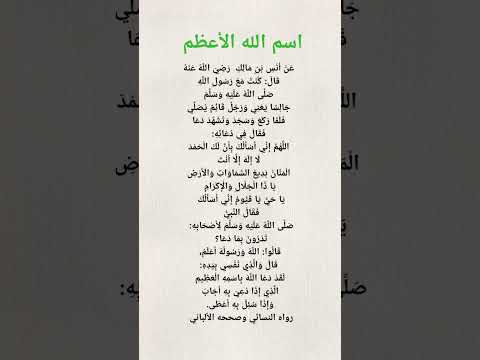 اسم الله الأعظم
عَنْ أَنَسِ بْنِ مَالِكٍ رَضِيَ اللَّهُ عَنْهُ
قَالَ: كُنْتُ مَعَ رَسُولِ اللَّهِ
صَلَّى اللَّهُ عَلَيْهِ وَسَلَّمَ
جَالِسًا يَعْنِي وَرَجُلٌ قَائِمٌ يُصَلِّي
فَلَمَّا رَكَعَ وَسَجَدَ وَتَشَهَّدَ دَعَا
فَقَالَ فِي دُعَائِهِ:
اللَّهُمَّ إِنِّي أَسْأَلُكَ بِأَنَّ لَكَ الْحَمْدَ
لَا إِلَهَ إِلَّا أَنْتَ
الْمَنَّانُ بَدِيعُ السَّمَاوَاتِ وَالْأَرْضِ
يَا ذَا الْجَلَالِ وَالْإِكْرَامِ
يَا حَيُّ يَا قَيُّومُ إِنِّي أَسْأَلُكَ
فَقَالَ النَّبِيُّ
صَلَّى اللَّهُ عَلَيْهِ وَسَلَّمَ لِأَصْحَابِهِ:
تَدْرُونَ بِمَا دَعَا؟
قَالُوا: اللَّهُ وَرَسُولُهُ أَعْلَمُ،
قَالَ وَالَّذِي نَفْسِي بِيَدِهِ:
لَقَدْ دَعَا اللَّهَ بِاسْمِهِ الْعَظِيمِ
الَّذِي إِذَا دُعِيَ بِهِ أَجَابَ
وَإِذَا سُئِلَ بِهِ أَعْطَى.
رواه النسائي وصححه الألباني